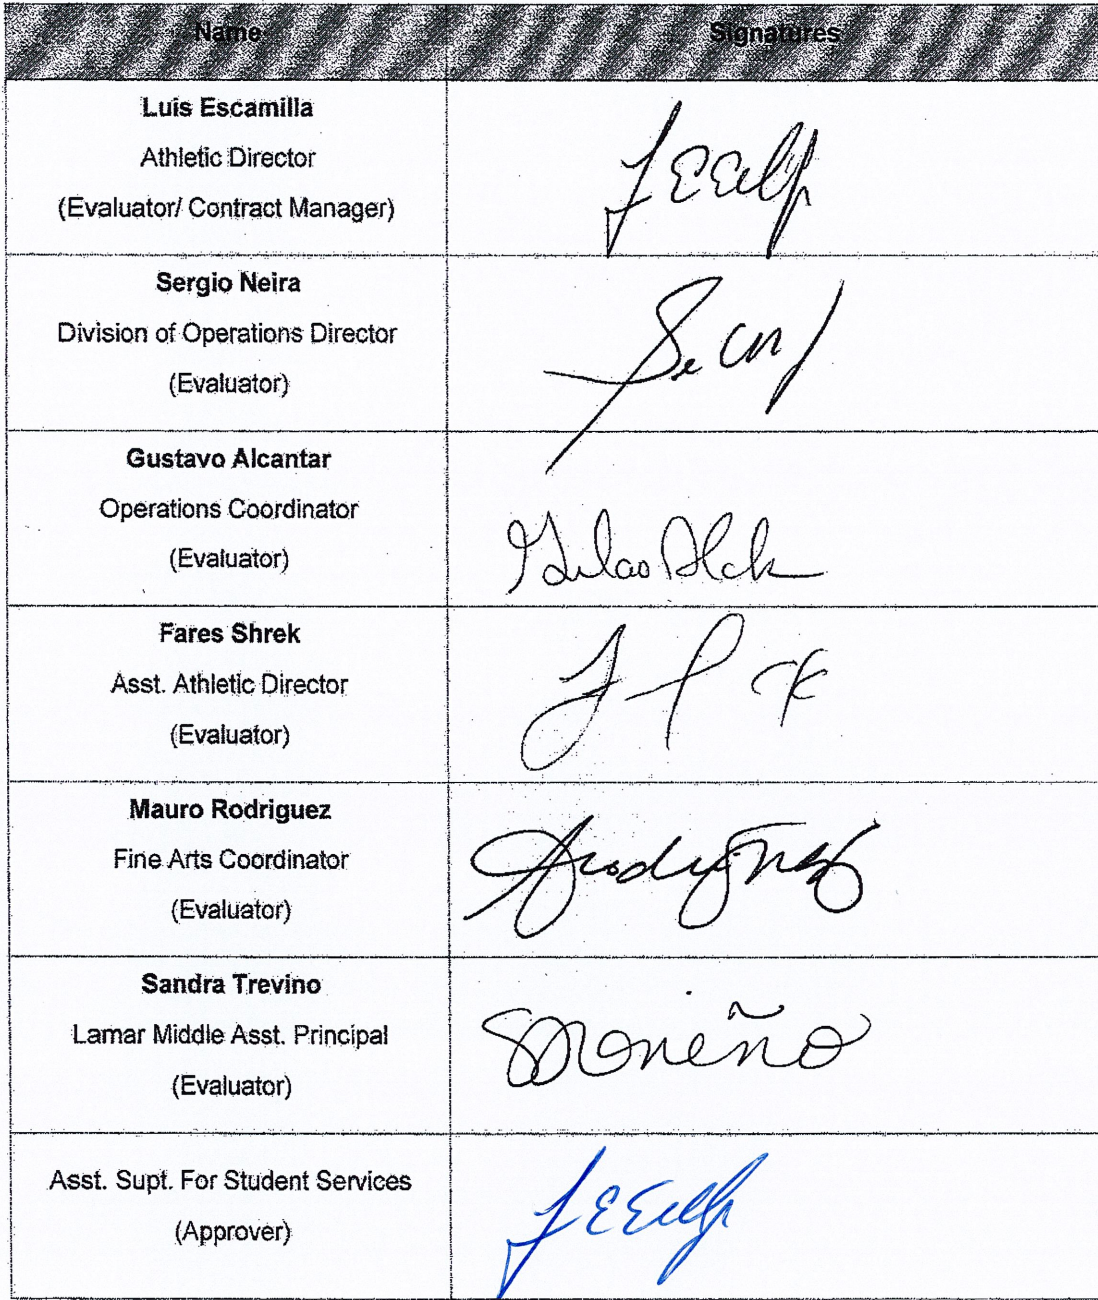 Name Signatures
Luis Escamilla
Athletic Director
(Evaluator/ Contract Manager)
Sergio Neira
Division of Operations Director
(Evaluator)
Gustavo Alcantar
Operations Coordinator
(Evaluator)
Fares Shrek
Asst. Athletic Director
(Evaluator)
Mauro Rodriguez
Fine Arts Coordinator
(Evaluator)
Sandra Trevino
Lamar Middle Asst. Principal
(Evaluator)
Asst. Supt. For Student Services
(Approver)